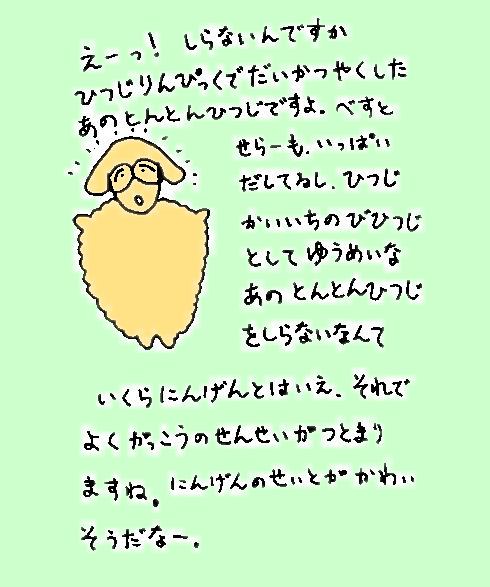 えーっ！ しらないんですか
ひつじりんぴっくでだいかつやくした
あのとんとんひつじですよ。べすと
せらーも、いっぱい
だしてるし、ひつじ
かいいちのびひつじ
としてゆうめいな
あのとんとんひつじ
をしらないなんて
いくらにんげんとはいえ、それで
よくがっこうのせんせいがつとまり
ますね。にんげんのせいとがかわい
そうだなー。